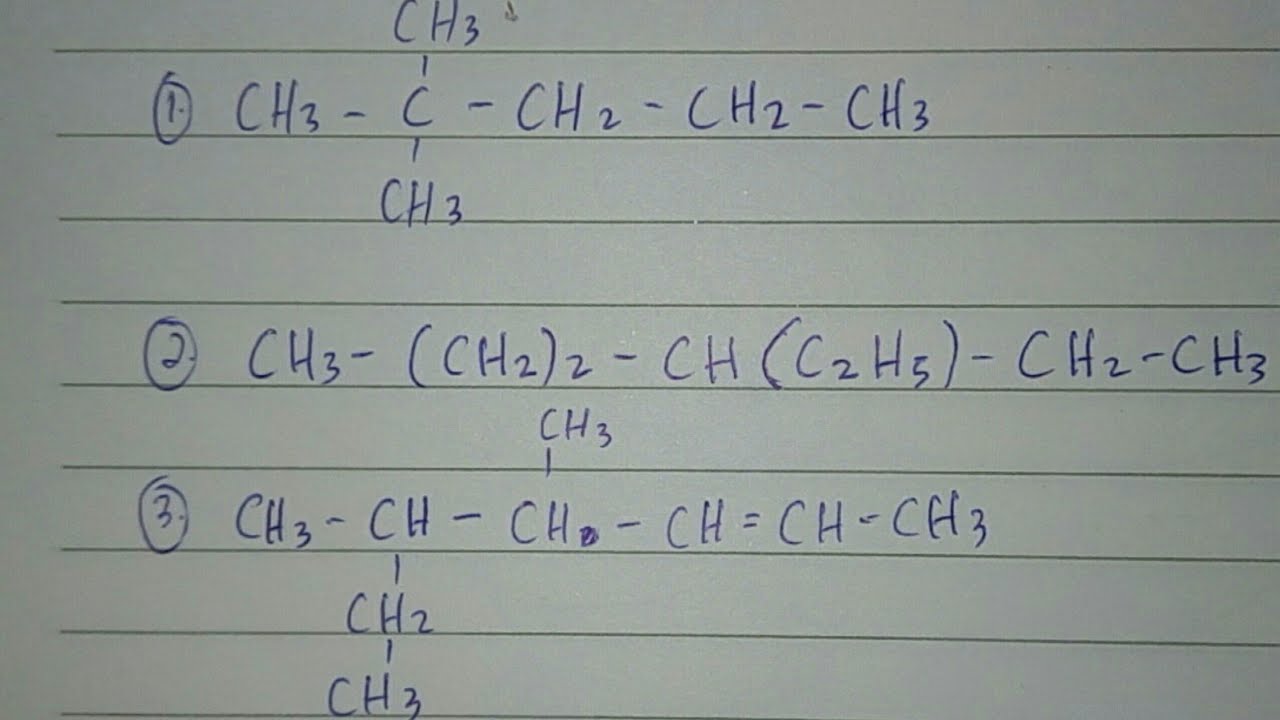 CH3
① CH3 - C - CH2 - CH2 - CH3
CH3
② CH3 - (CH2)2 - CH(C2H5) - CH2 - CH3
CH3
③ CH3 - CH - CH - CH = CH - CH3
CH2
CH3